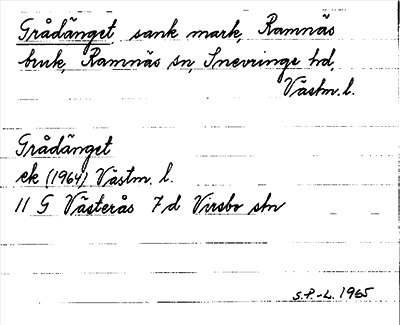 Grådänget, sank mark, Ramnäs
bruk, Ramnäs sn, Snevringe hd,
Västm. l.
Grådänget
ek (1964) Västm. l.
11 G Västerås 7 d Virsbo stn
S.P.-L. 1965